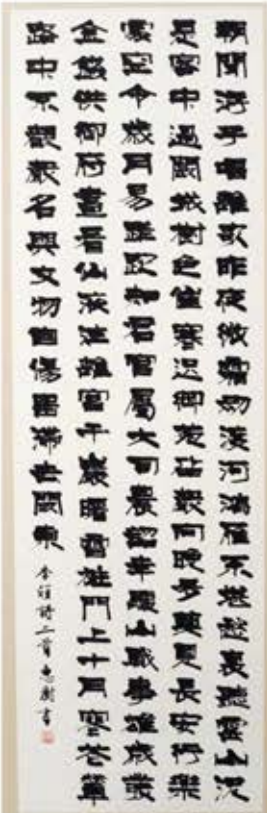 朝聞游子唱離歌昨夜微霜初渡河鴻雁不堪愁裏聽雲山況
是客中過關城樹色催寒近御苑砧聲向晚多莫見長安行樂
處空令歲月易蹉跎知君官屬大司農詔幸驪山職事雄歲發
金錢供御府晝看仙液注離宮千巖曙雪旌門上十月寒花輦
路中不觀聲名與文物自傷留滯去關東
李頎詩二首 書